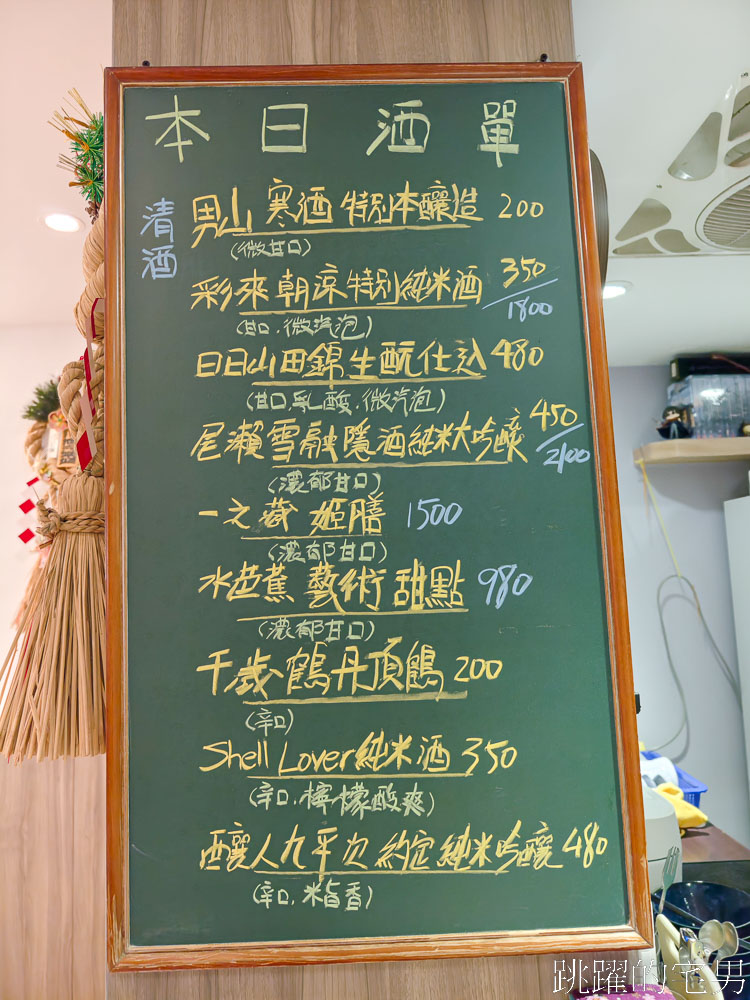 本日酒單
清酒
男山 寒酒 特別本釀造 200
(微甘口)
彩來 朝涼 特別純米酒 350/1800
(甘口.微汽泡)
日日山田錦 生酛仕込 480
(甘口.乳酸.微汽泡)
尾瀨雪融 隱酒 純米大吟釀 450/2100
(濃郁甘口)
一之藏 姬膳 1500
(濃郁甘口)
水芭蕉 藝術 甜點 980
(濃郁甘口)
千歲鶴 丹頂鶴 200
(辛口)
Shell Lover 純米酒 350
(辛口.檸檬酸爽)
釀人九平次 約定 純米吟釀 480
(辛口.米旨香)
跳躍的宅男